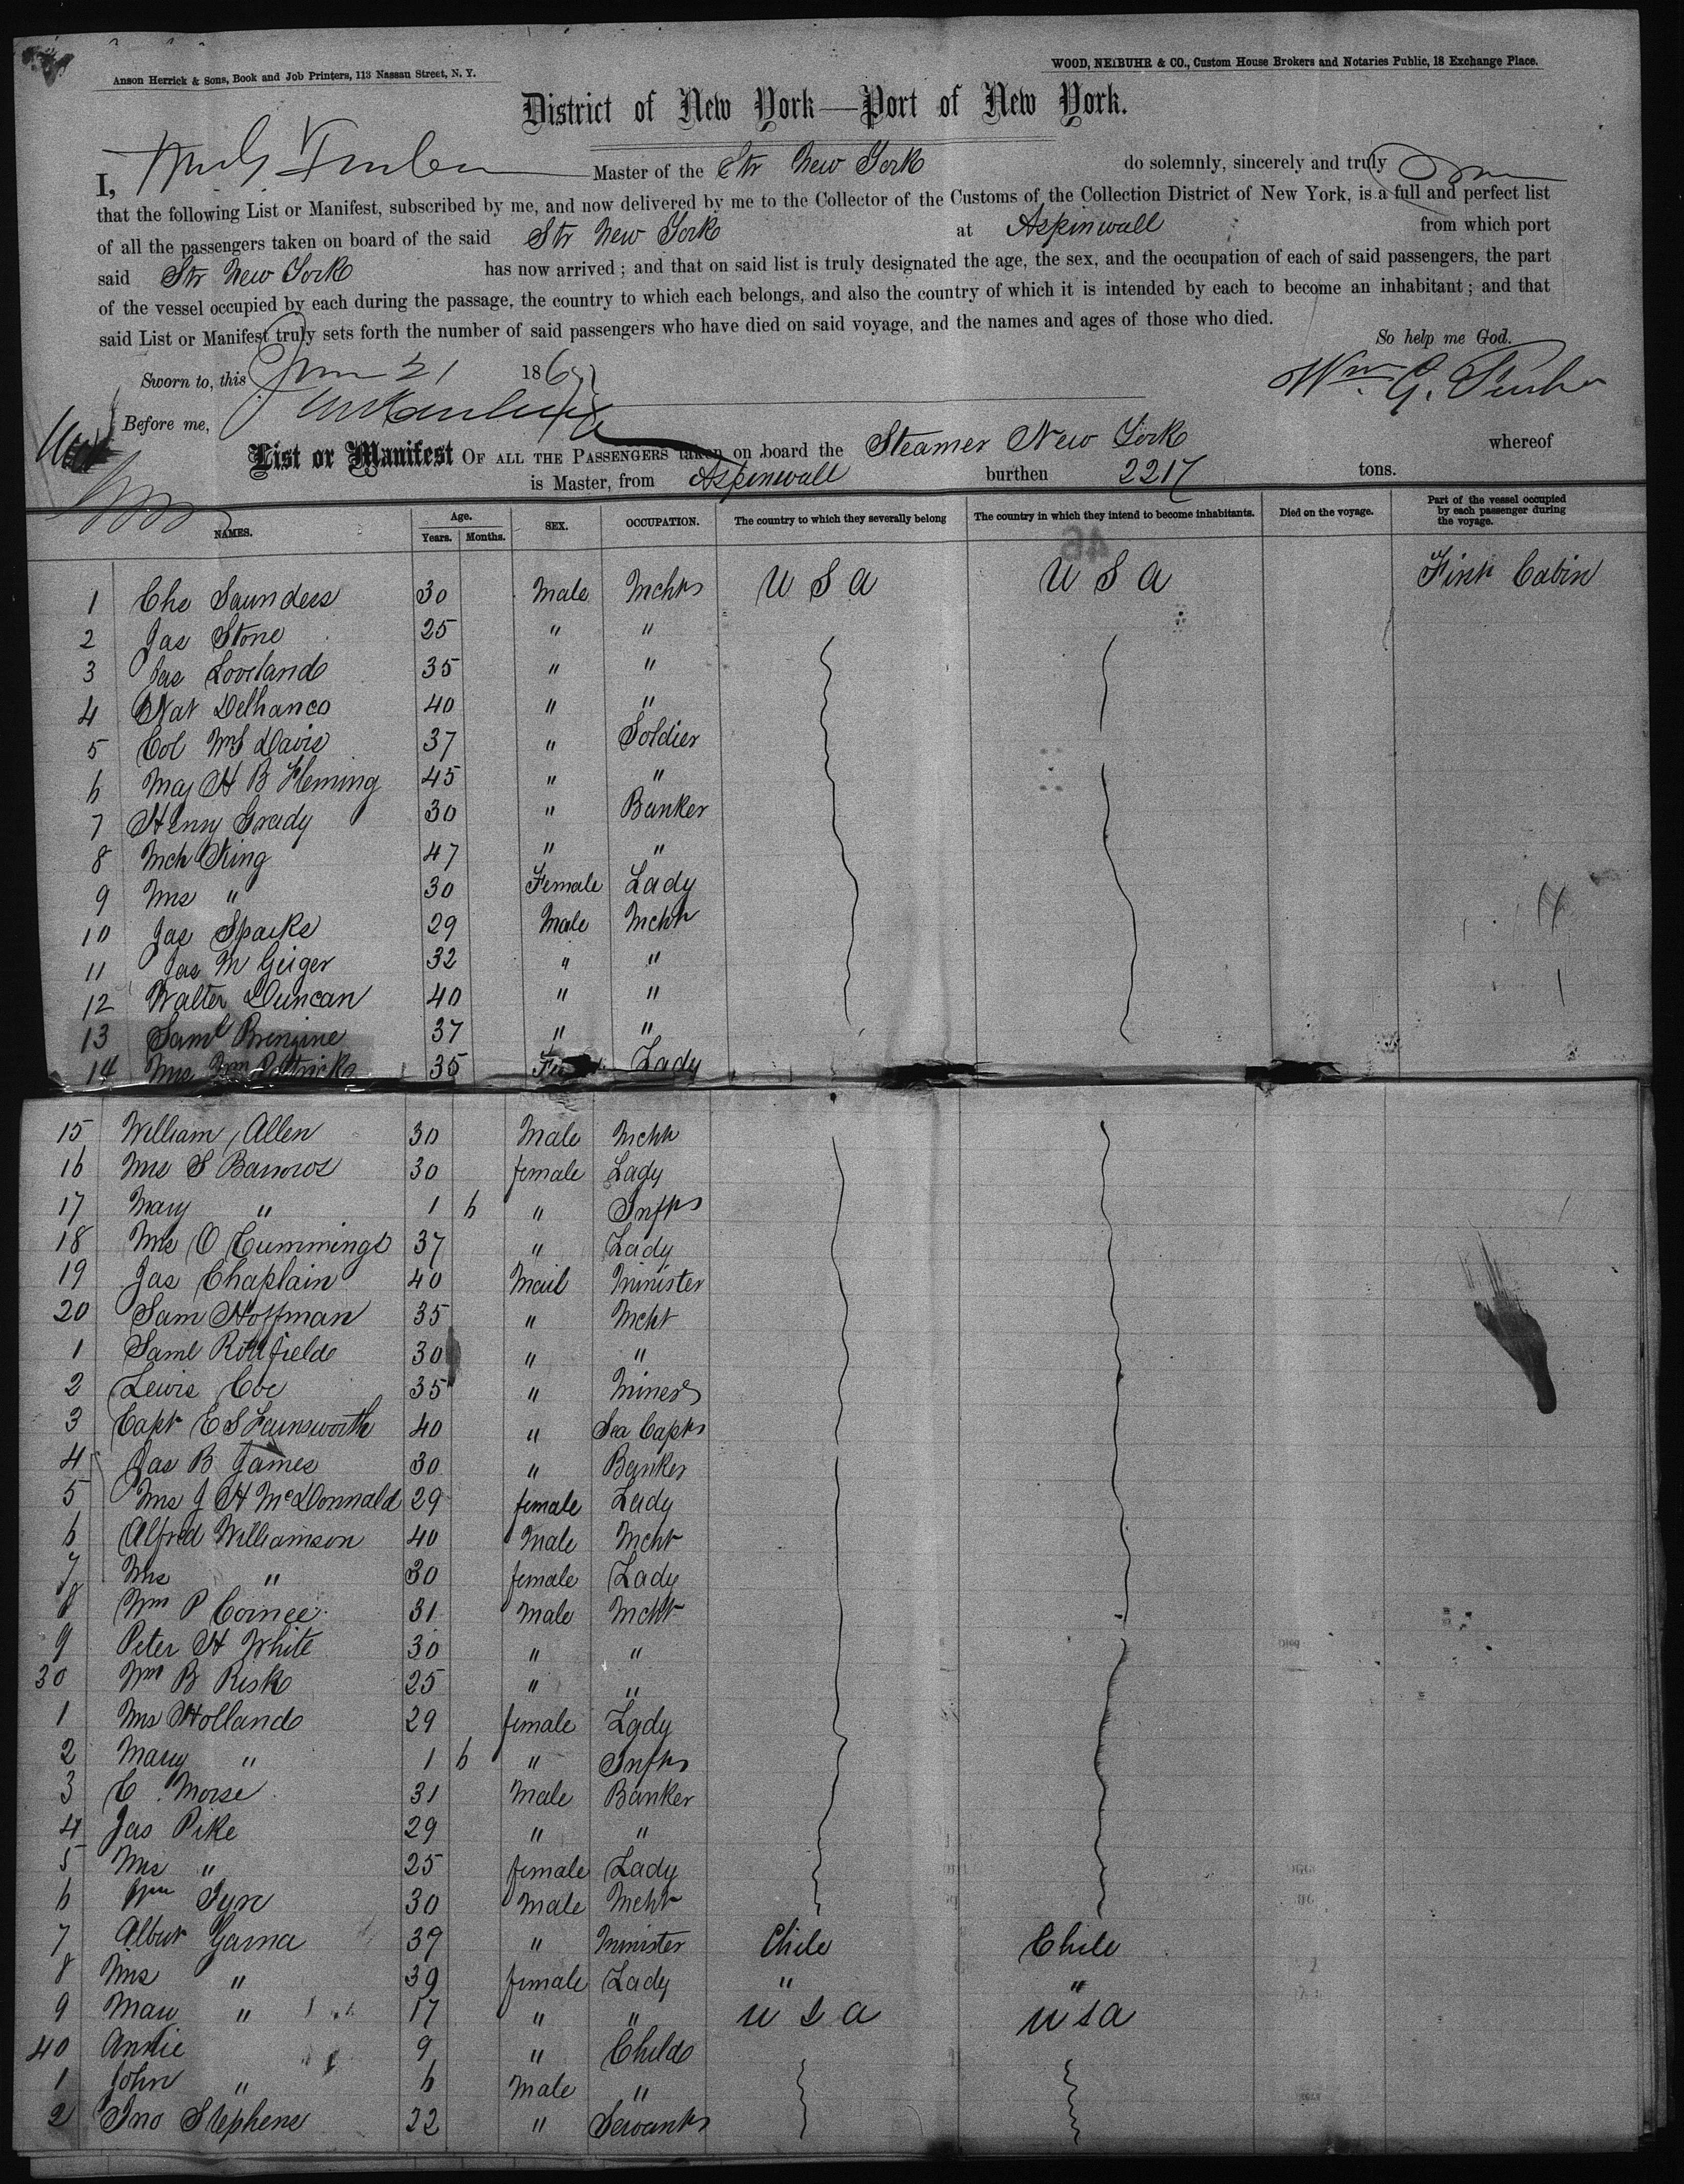 Anson Herrick & Sons, Book and Job Printers, 113 Nassau Street, N. Y.
WOOD, NEIBUHR & CO., Custom House Brokers and Notaries Public, 18 Exchange Place.
District of New York—Port of New York.
I, Master of the Str New York do solemnly, sincerely and truly
that the following List or Manifest, subscribed by me, and now delivered by me to the Collector of the Customs of the Collection District of New York, is a full and perfect list
of all the passengers taken on board of the said Str New York at Aspinwall from which port
said Str New York has now arrived ; and that on said list is truly designated the age, the sex, and the occupation of each of said passengers, the part
of the vessel occupied by each during the passage, the country to which each belongs, and also the country of which it is intended by each to become an inhabitant ; and that
said List or Manifest truly sets forth the number of said passengers who have died on said voyage, and the names and ages of those who died.
So help me God.
Sworn to, this 21 186
Wm. G.
Before me,
List or Manifest OF ALL THE PASSENGERS taken on board the Steamer New York whereof
is Master, from Aspinwall burthen 2217 tons.
NAMES. Age. Years. Months. SEX. OCCUPATION. The country to which they severally belong The country in which they intend to become inhabitants. Died on the voyage. Part of the vessel occupied by each passenger during the voyage.
46
1 Chs Saunders 30 Male Mcht U S A U S A First Cabin
2 Jas Stone 25 " "
3 Jas Loveland 35 " "
4 Nat 40 " "
5 Col Davis 37 " Soldier
6 Maj H B Fleming 45 " "
7 Henry Grady 30 " Banker
8 Mch King 47 " "
9 Mrs " 30 Female Lady
10 Jas Sparks 29 Male Mcht
11 Jas M Geiger 32 " "
12 Walter Duncan 40 " "
13 Saml 37 " "
14 Mrs Wm 35 Lady
15 William Allen 30 Male Mcht
16 Mrs S Barrows 30 female Lady
17 Mary " 1 6 " Inft
18 Mrs O Cummings 37 " Lady
19 Jas Chaplain 40 Mail Minister
20 Sam Hoffman 35 " Mcht
1 Saml 30 " "
2 Lewis Coe 35 " Miner
3 Capt E S 40 " Sea Capt
4 Jas B James 30 " Banker
5 Mrs J H McDonnald 29 female Lady
6 Alfred Williamson 40 Male Mcht
7 Mrs " 30 female Lady
8 Wm P 31 Male Mcht
9 Peter H White 30 " "
30 Wm B Risk 25 " "
1 Mrs Holland 29 female Lady
2 Mary " 1 6 " Inft
3 C Morse 31 Male Banker
4 Jas Pike 29 " "
5 Mrs " 25 female Lady
6 Wm 30 Male Mcht
7 Albert 39 " Minister Chile Chile
8 Mrs " 39 female Lady " "
9 Mary " 17 " " U S A U S A
40 Annie 9 " Child
1 John " 6 Male "
2 Jno Stephens 22 " Servant